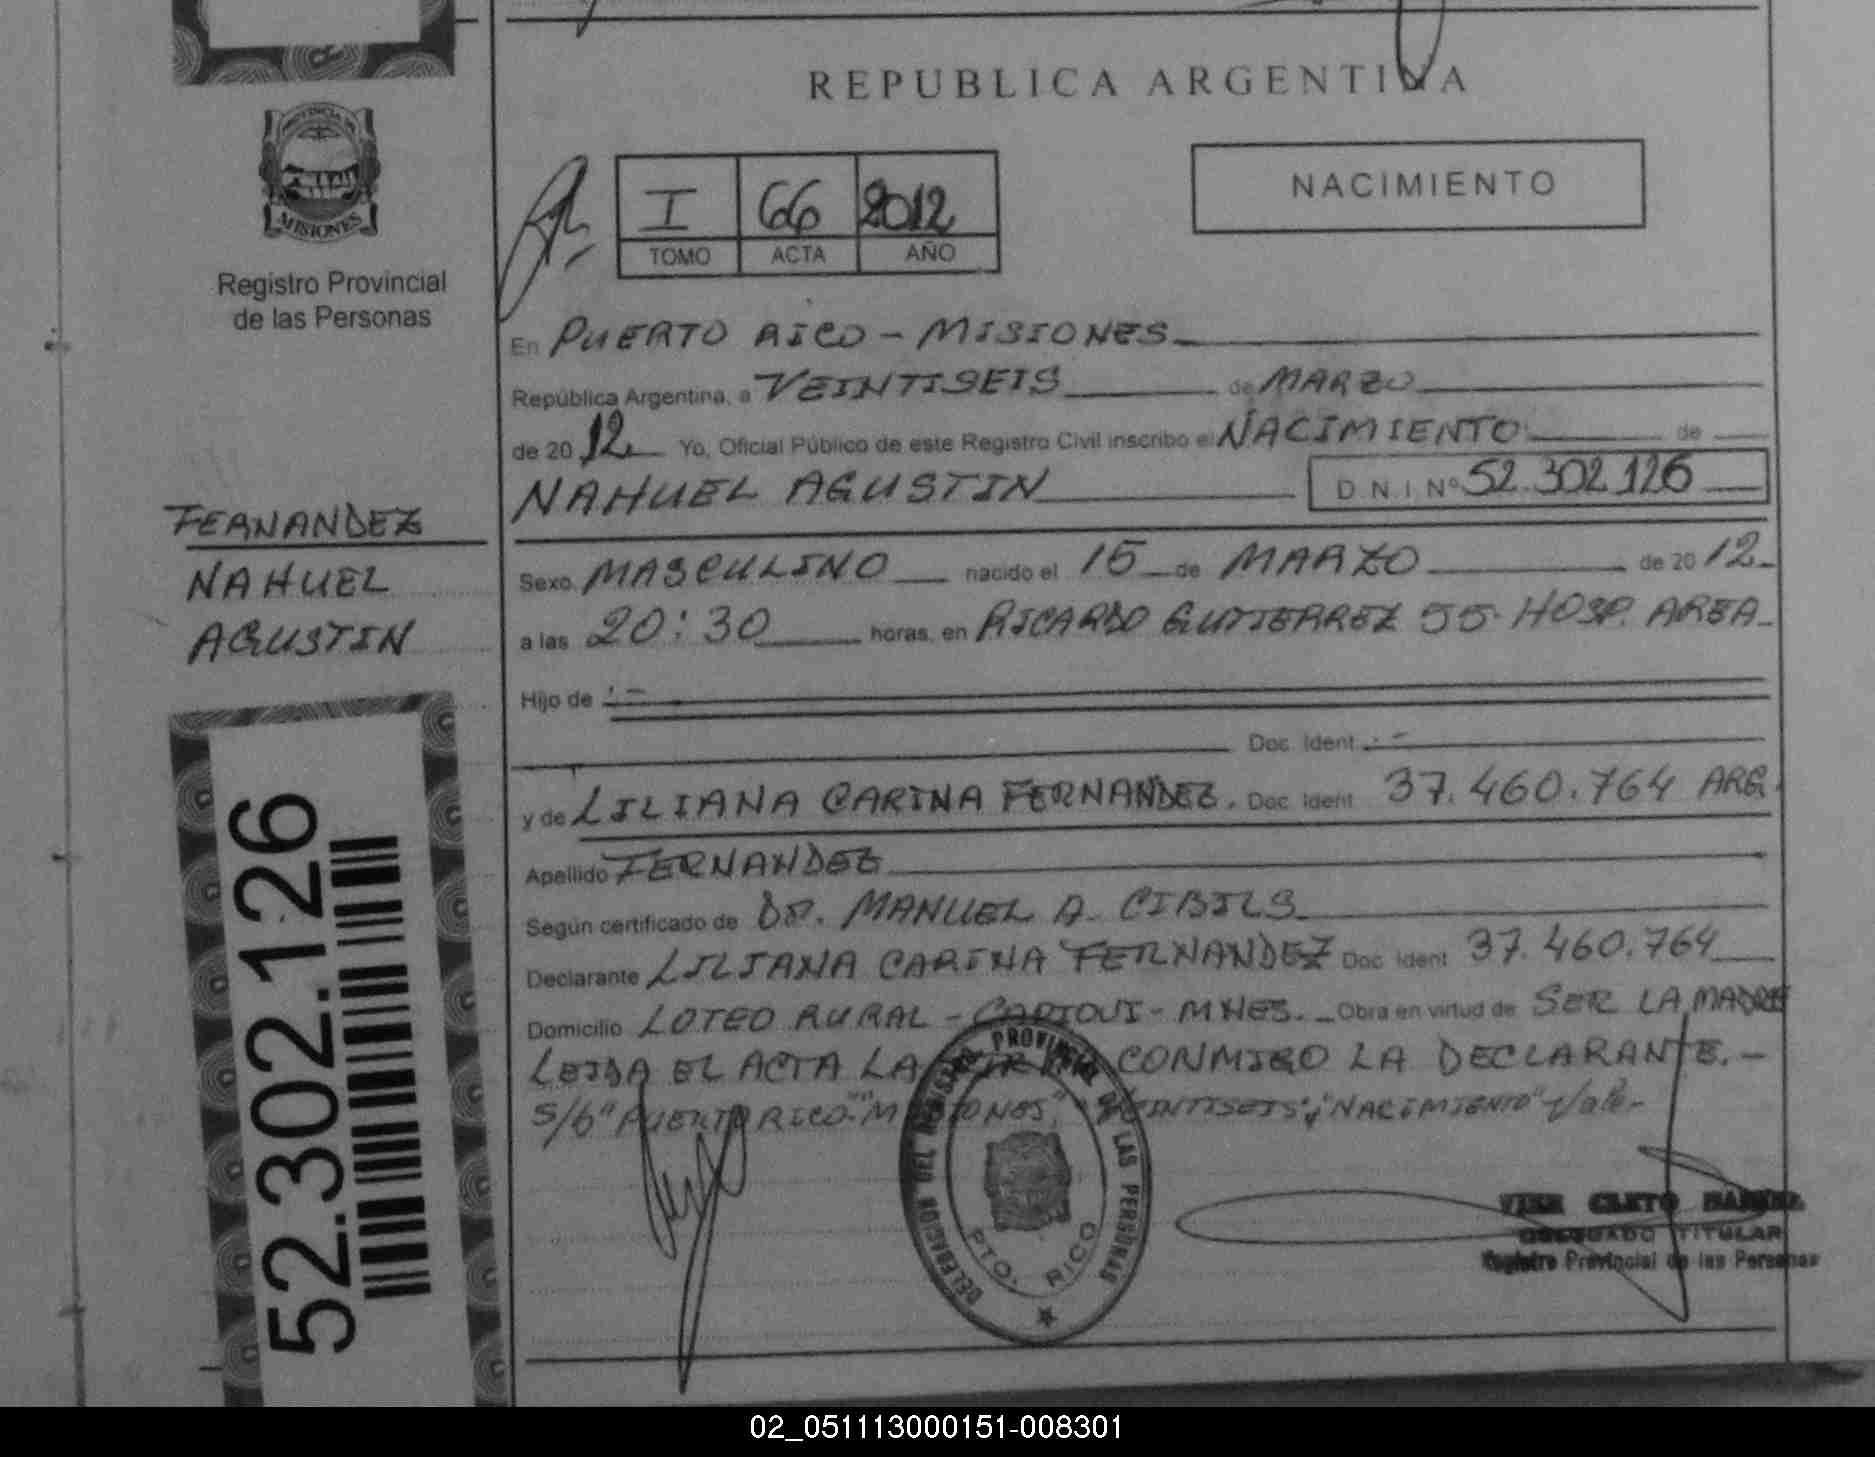 REPUBLICA ARGENTINA
PROVINCIA DE
MISIONES
Registro Provincial
de las Personas
I 66 2012
TOMO ACTA AÑO
NACIMIENTO
En PUERTO RICO - MISIONES
República Argentina, a VEINTISEIS de MARZO
de 20 12 Yo, Oficial Público de este Registro Civil inscribo el NACIMIENTO de
NAHUEL AGUSTIN D.N.I. Nº 52.302.126
FERNANDEZ
NAHUEL
AGUSTIN
Sexo MASCULINO nacido el 15 de MARZO de 20 12
a las 20:30 horas, en RICARDO GUTIERREZ 55 - HOSP. AREA
Hijo de
Doc. Ident.
y de LILIANA CARINA FERNANDEZ. Doc. Ident. 37.460.764 ARG.
Apellido FERNANDEZ
Según certificado de DR. MANUEL A. CIBILS
Declarante LILIANA CARINA FERNANDEZ Doc. Ident. 37.460.764
Domicilio LOTEO RURAL - CAPIOVI - MNES. Obra en virtud de SER LA MADRE
LEIDA EL ACTA LA FIRMA CONMIGO LA DECLARANTE.-
S/b "PUERTO RICO"-"MISIONES", "VEINTISEIS", "NACIMIENTO" Vale-
52.302.126
DELEGACION DEL REGISTRO PROVINCIAL DE LAS PERSONAS
PTO. RICO
CLETO
DELEGADO TITULAR
Registro Provincial de las Personas
02_051113000151-008301